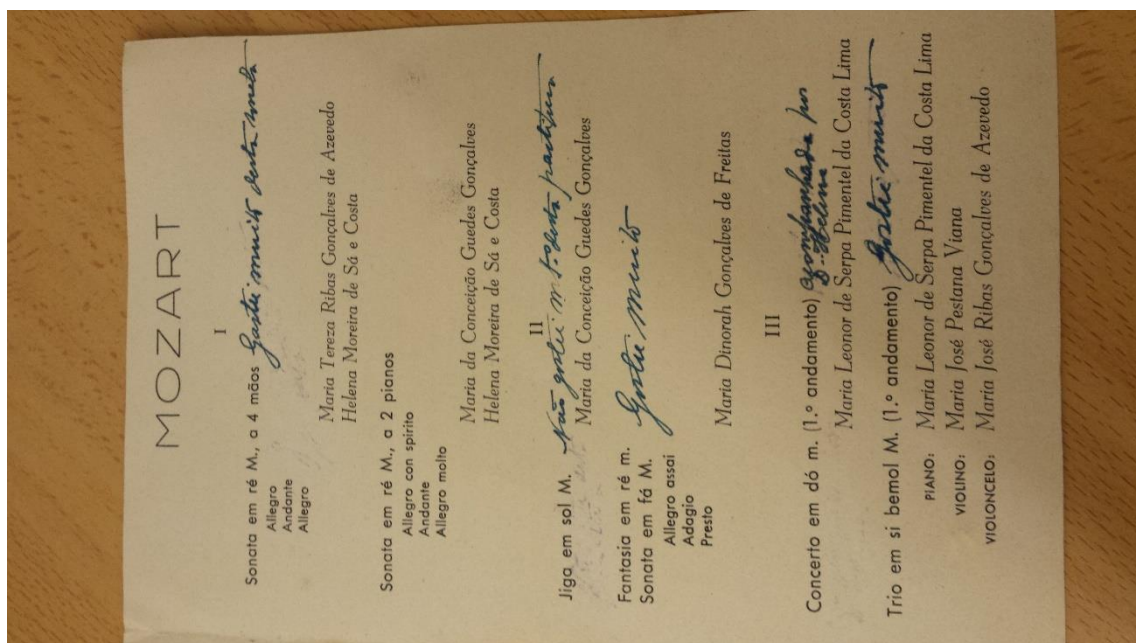 MOZART
I
Sonata em ré M., a 4 mãos Gostei muito desta sonata
Allegro
Andante
Allegro
Maria Tereza Ribas Gonçalves de Azevedo
Helena Moreira de Sá e Costa
Sonata em ré M., a 2 pianos
Allegro con spirito
Andante
Allegro molto
Maria da Conceição Guedes Gonçalves
Helena Moreira de Sá e Costa
II
Jiga em sol M. Não gostei desta partitura
Maria da Conceição Guedes Gonçalves
Fantasia em ré m. Gostei muito
Sonata em fá M.
Allegro assai
Adagio
Presto
Maria Dinorah Gonçalves de Freitas
III
Concerto em dó m. (1.º andamento) acompanhada por
Helena
Maria Leonor de Serpa Pimentel da Costa Lima
Trio em si bemol M. (1.º andamento) Gostei muito
PIANO: Maria Leonor de Serpa Pimentel da Costa Lima
VIOLINO: Maria José Pestana Viana
VIOLONCELO: Maria José Ribas Gonçalves de Azevedo